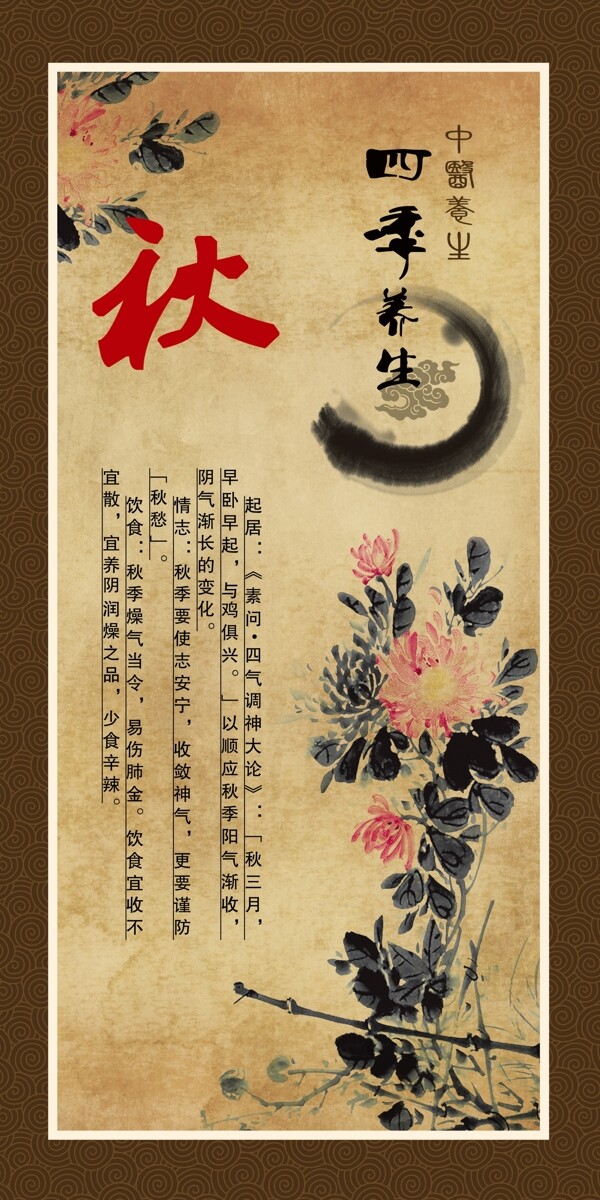 中醫養生
四季养生
秋
起居：《素问·四气调神大论》：「秋三月，
早卧早起，与鸡俱兴。」以顺应秋季阳气渐收，
阴气渐长的变化。
情志：秋季要使志安宁，收敛神气，更要谨防
「秋愁」。
饮食：秋季燥气当令，易伤肺金。饮食宜收不
宜散，宜养阴润燥之品，少食辛辣。